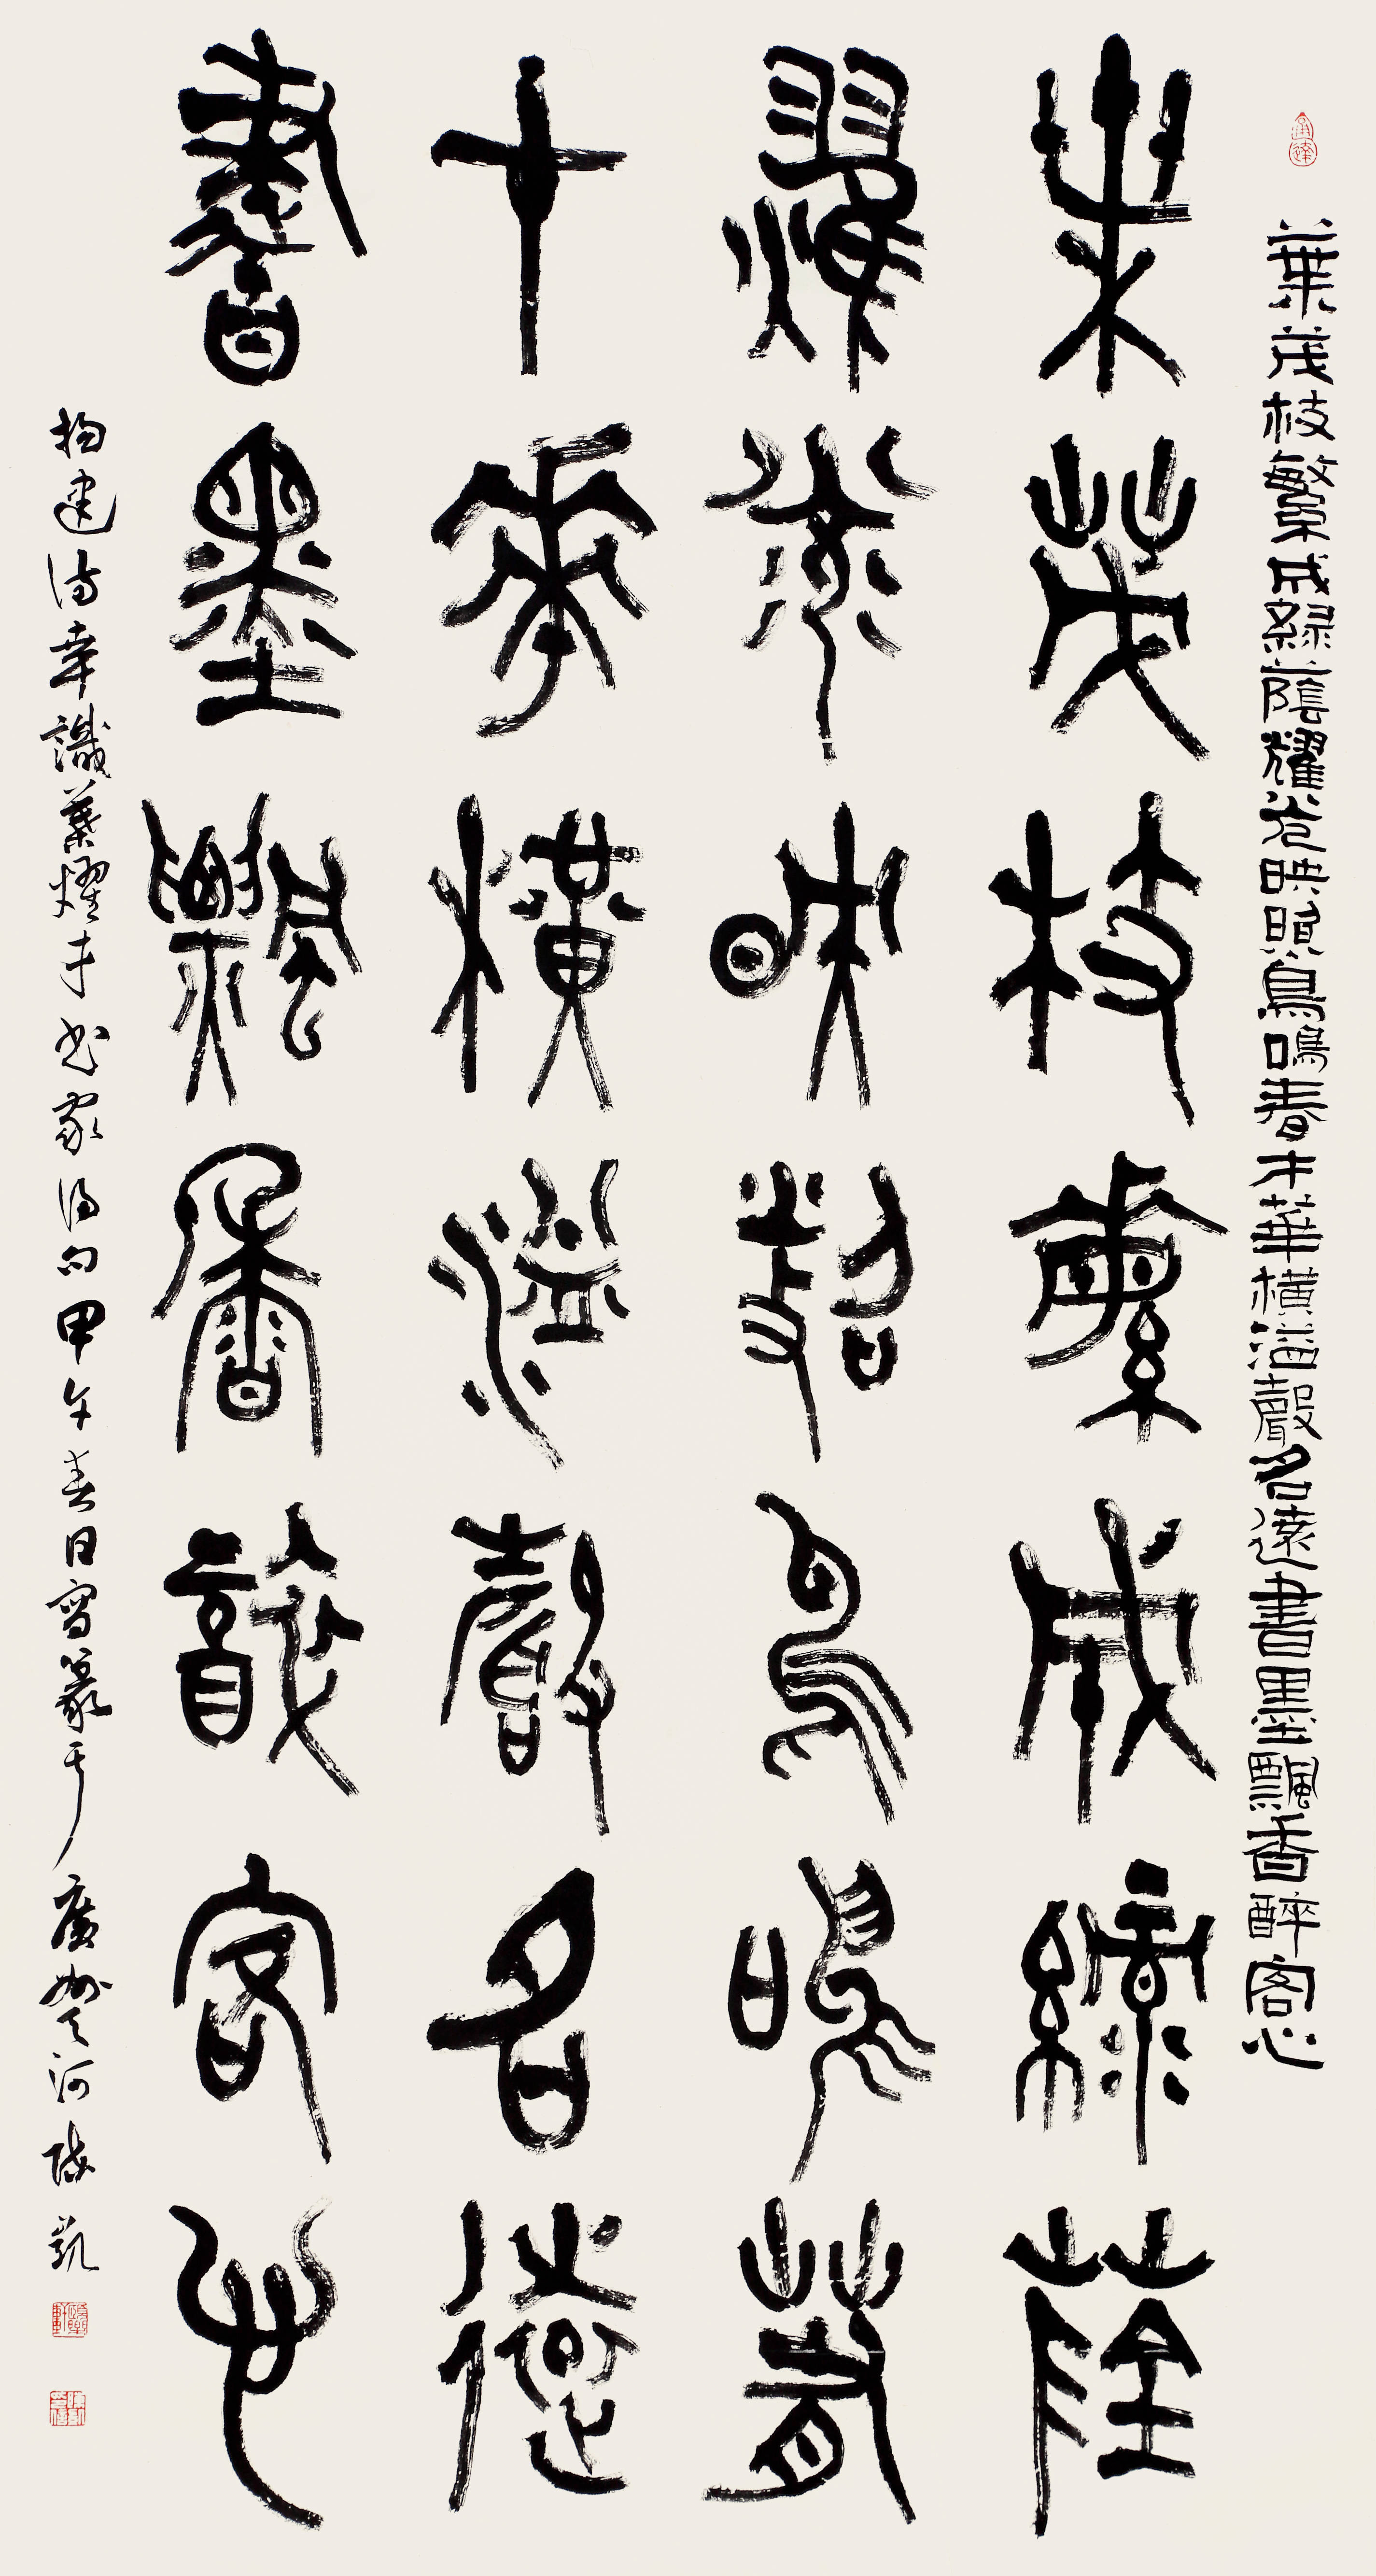 葉茂枝繁成綠蔭耀光映照鳥鳴春才華橫溢聲名遠書墨飄香醉客心
葉茂枝繁成綠蔭
耀光映照鳥鳴春
才華橫溢聲名遠
書墨飄香醉客心
楊建詩幸識葉耀才書家得句甲午春日寫篆于廣州天河陳凱